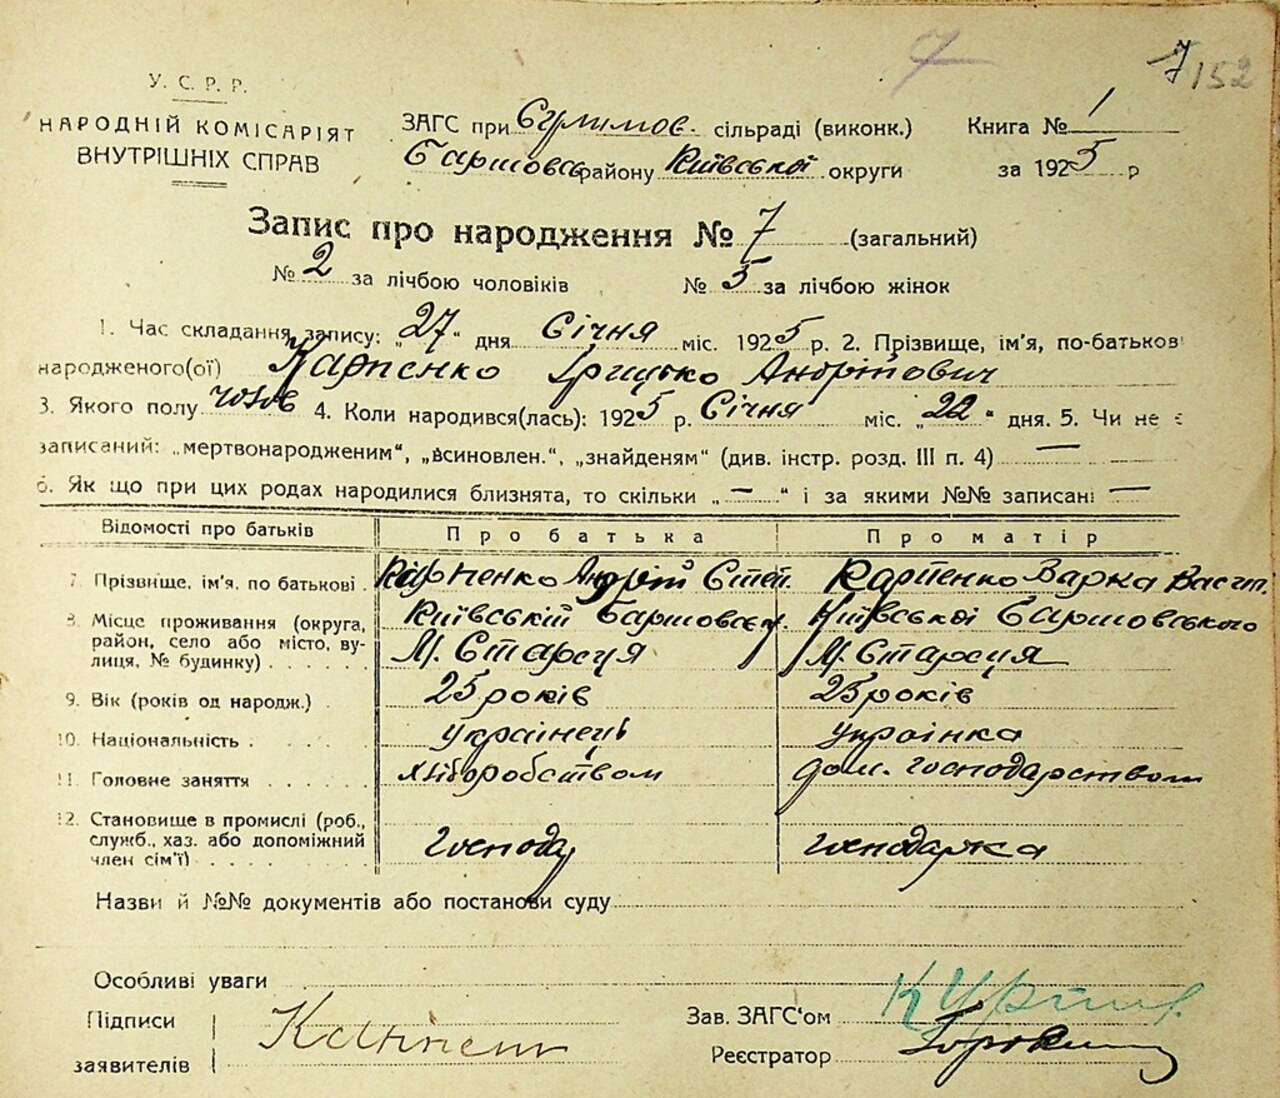 7
7 152
У. С. Р. Р.
НАРОДНІЙ КОМІСАРІЯТ
ВНУТРІШНІХ СПРАВ
ЗАГС при сільраді (виконк.) Книга № 1
району Київської округи за 1925 р
Запис про народження № 7 (загальний)
№ 2 за лічбою чоловіків № 5 за лічбою жінок
1. Час складання запису: „27“ дня Січня міс. 1925 р. 2. Прізвище, ім'я, по-батькові
народженого(ої) Карпенко Грицько Андрійович
3. Якого полу чолов 4. Коли народився(лась): 1925 р. Січня міс. „22“ дня. 5. Чи не є
записаний: „мертвонародженим“, „всиновлен.“, „знайденям“ (див. інстр. розд. III п. 4) —
6. Як що при цих родах народилися близнята, то скільки „—“ і за якими №№ записані —
Відомості про батьків Про батька Про матір
7. Прізвище, ім'я, по батькові Карпенко Андрій Степ. Карпенко Варка Васил.
8. Місце проживання (округа, район, село або місто, вулиця, № будинку) Київській Київської
М. Старсця М. Старсця
9. Вік (років од народж.) 25 років 25 років
10. Національність українець українка
11. Головне заняття хліборобством дом. господарством
12. Становище в промислі (роб., служб., хаз. або допоміжний член сім'ї) господар господарка
Назви й №№ документів або постанови суду
Особливі уваги
Підписи
заявителів
Зав. ЗАГС'ом
Реєстратор